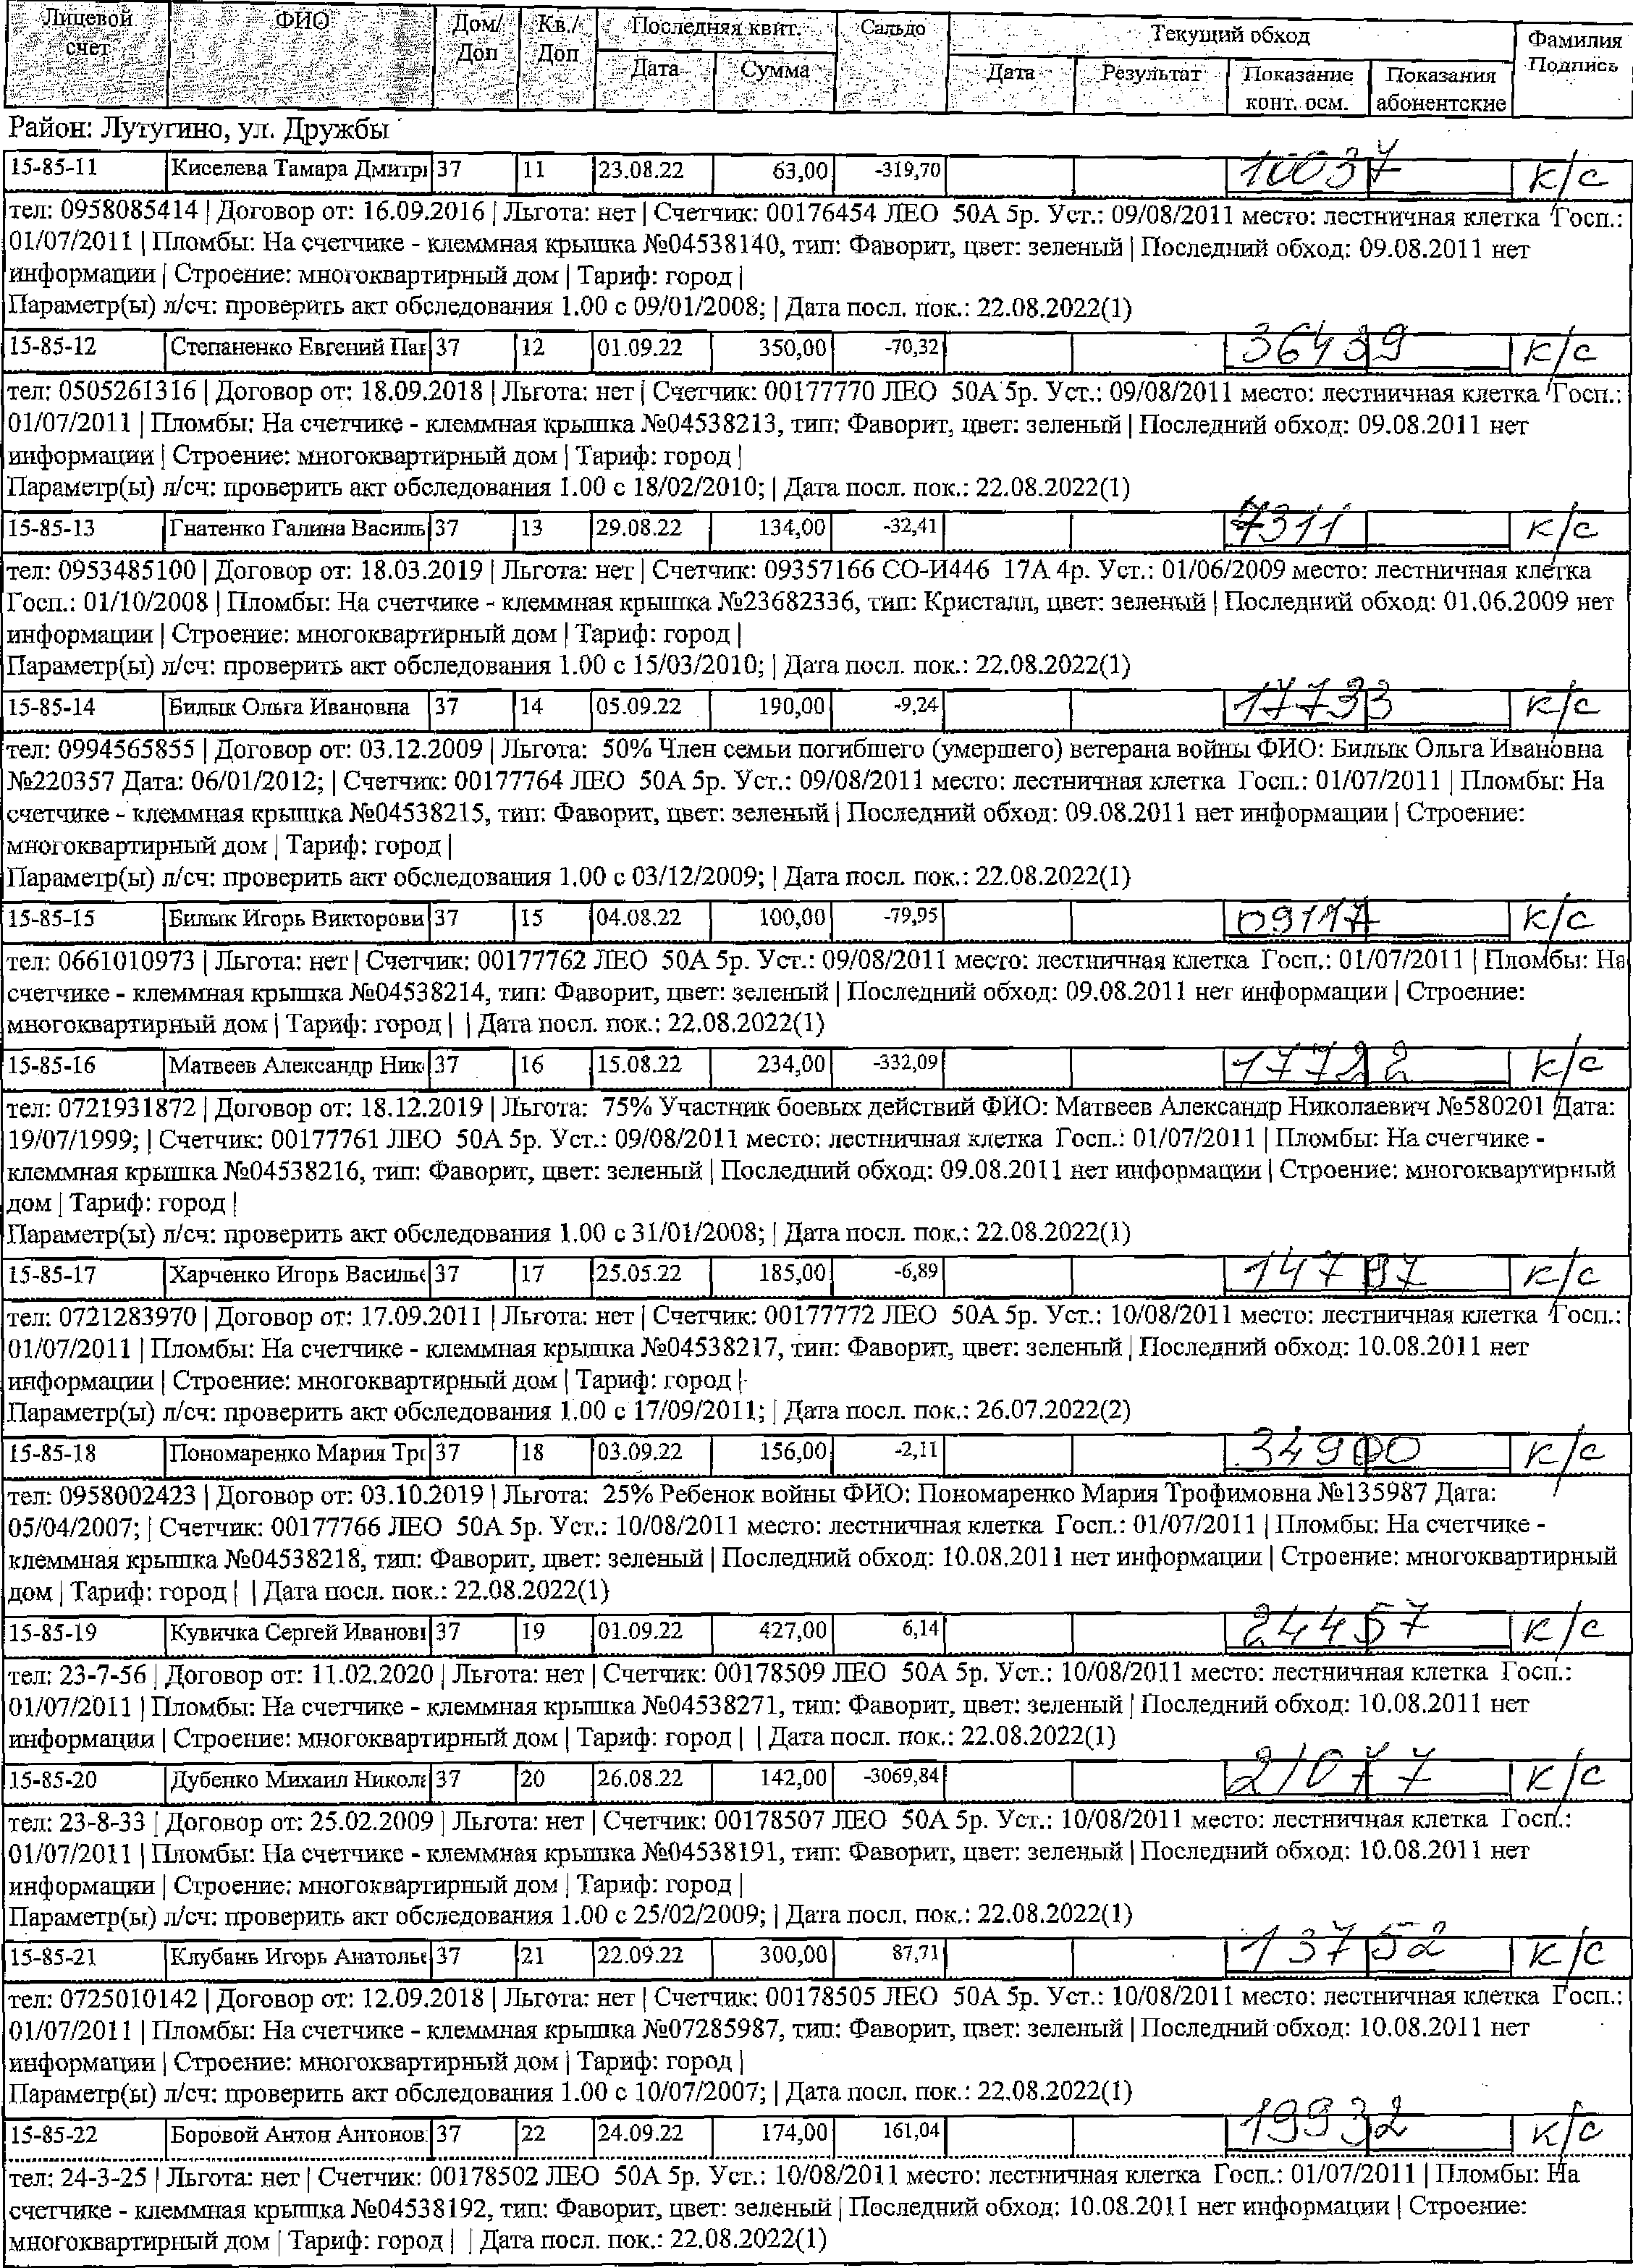 Лицевой счет ФИО Дом/Доп Кв./Доп Последняя квит. Сальдо Текущий обход Фамилия Подпись
Дата Сумма Дата Результат Показание конт. осм. Показания абонентские
Район: Лутугино, ул. Дружбы
15-85-11 Киселева Тамара Дмитри 37 11 23.08.22 63,00 -319,70 10037 к/с
тел: 0958085414 | Договор от: 16.09.2016 | Льгота: нет | Счетчик: 00176454 ЛЕО 50А 5р. Уст.: 09/08/2011 место: лестничная клетка Госп.:
01/07/2011 | Пломбы: На счетчике - клеммная крышка №04538140, тип: Фаворит, цвет: зеленый | Последний обход: 09.08.2011 нет
информации | Строение: многоквартирный дом | Тариф: город |
Параметр(ы) л/сч: проверить акт обследования 1.00 с 09/01/2008; | Дата посл. пок.: 22.08.2022(1)
15-85-12 Степаненко Евгений Пав 37 12 01.09.22 350,00 -70,32 36439 к/с
тел: 0505261316 | Договор от: 18.09.2018 | Льгота: нет | Счетчик: 00177770 ЛЕО 50А 5р. Уст.: 09/08/2011 место: лестничная клетка Госп.:
01/07/2011 | Пломбы: На счетчике - клеммная крышка №04538213, тип: Фаворит, цвет: зеленый | Последний обход: 09.08.2011 нет
информации | Строение: многоквартирный дом | Тариф: город |
Параметр(ы) л/сч: проверить акт обследования 1.00 с 18/02/2010; | Дата посл. пок.: 22.08.2022(1)
15-85-13 Гнатенко Галина Василь 37 13 29.08.22 134,00 -32,41 7311 к/с
тел: 0953485100 | Договор от: 18.03.2019 | Льгота: нет | Счетчик: 09357166 СО-И446 17А 4р. Уст.: 01/06/2009 место: лестничная клетка
Госп.: 01/10/2008 | Пломбы: На счетчике - клеммная крышка №23682336, тип: Кристалл, цвет: зеленый | Последний обход: 01.06.2009 нет
информации | Строение: многоквартирный дом | Тариф: город |
Параметр(ы) л/сч: проверить акт обследования 1.00 с 15/03/2010; | Дата посл. пок.: 22.08.2022(1)
15-85-14 Билык Ольга Ивановна 37 14 05.09.22 190,00 -9,24 17733 к/с
тел: 0994565855 | Договор от: 03.12.2009 | Льгота: 50% Член семьи погибшего (умершего) ветерана войны ФИО: Билык Ольга Ивановна
№220357 Дата: 06/01/2012; | Счетчик: 00177764 ЛЕО 50А 5р. Уст.: 09/08/2011 место: лестничная клетка Госп.: 01/07/2011 | Пломбы: На
счетчике - клеммная крышка №04538215, тип: Фаворит, цвет: зеленый | Последний обход: 09.08.2011 нет информации | Строение:
многоквартирный дом | Тариф: город |
Параметр(ы) л/сч: проверить акт обследования 1.00 с 03/12/2009; | Дата посл. пок.: 22.08.2022(1)
15-85-15 Билык Игорь Викторови 37 15 04.08.22 100,00 -79,95 09117 к/с
тел: 0661010973 | Льгота: нет | Счетчик: 00177762 ЛЕО 50А 5р. Уст.: 09/08/2011 место: лестничная клетка Госп.: 01/07/2011 | Пломбы: На
счетчике - клеммная крышка №04538214, тип: Фаворит, цвет: зеленый | Последний обход: 09.08.2011 нет информации | Строение:
многоквартирный дом | Тариф: город | | Дата посл. пок.: 22.08.2022(1)
15-85-16 Матвеев Александр Ник 37 16 15.08.22 234,00 -332,09 17722 к/с
тел: 0721931872 | Договор от: 18.12.2019 | Льгота: 75% Участник боевых действий ФИО: Матвеев Александр Николаевич №580201 Дата:
19/07/1999; | Счетчик: 00177761 ЛЕО 50А 5р. Уст.: 09/08/2011 место: лестничная клетка Госп.: 01/07/2011 | Пломбы: На счетчике -
клеммная крышка №04538216, тип: Фаворит, цвет: зеленый | Последний обход: 09.08.2011 нет информации | Строение: многоквартирный
дом | Тариф: город |
Параметр(ы) л/сч: проверить акт обследования 1.00 с 31/01/2008; | Дата посл. пок.: 22.08.2022(1)
15-85-17 Харченко Игорь Василье 37 17 25.05.22 185,00 -6,89 14797 к/с
тел: 0721283970 | Договор от: 17.09.2011 | Льгота: нет | Счетчик: 00177772 ЛЕО 50А 5р. Уст.: 10/08/2011 место: лестничная клетка Госп.:
01/07/2011 | Пломбы: На счетчике - клеммная крышка №04538217, тип: Фаворит, цвет: зеленый | Последний обход: 10.08.2011 нет
информации | Строение: многоквартирный дом | Тариф: город |
Параметр(ы) л/сч: проверить акт обследования 1.00 с 17/09/2011; | Дата посл. пок.: 26.07.2022(2)
15-85-18 Пономаренко Мария Тро 37 18 03.09.22 156,00 -2,11 34900 к/с
тел: 0958002423 | Договор от: 03.10.2019 | Льгота: 25% Ребенок войны ФИО: Пономаренко Мария Трофимовна №135987 Дата:
05/04/2007; | Счетчик: 00177766 ЛЕО 50А 5р. Уст.: 10/08/2011 место: лестничная клетка Госп.: 01/07/2011 | Пломбы: На счетчике -
клеммная крышка №04538218, тип: Фаворит, цвет: зеленый | Последний обход: 10.08.2011 нет информации | Строение: многоквартирный
дом | Тариф: город | | Дата посл. пок.: 22.08.2022(1)
15-85-19 Кувичка Сергей Иванови 37 19 01.09.22 427,00 6,14 24457 к/с
тел: 23-7-56 | Договор от: 11.02.2020 | Льгота: нет | Счетчик: 00178509 ЛЕО 50А 5р. Уст.: 10/08/2011 место: лестничная клетка Госп.:
01/07/2011 | Пломбы: На счетчике - клеммная крышка №04538271, тип: Фаворит, цвет: зеленый | Последний обход: 10.08.2011 нет
информации | Строение: многоквартирный дом | Тариф: город | | Дата посл. пок.: 22.08.2022(1)
15-85-20 Дубенко Михаил Никола 37 20 26.08.22 142,00 -3069,84 21077 к/с
тел: 23-8-33 | Договор от: 25.02.2009 | Льгота: нет | Счетчик: 00178507 ЛЕО 50А 5р. Уст.: 10/08/2011 место: лестничная клетка Госп.:
01/07/2011 | Пломбы: На счетчике - клеммная крышка №04538191, тип: Фаворит, цвет: зеленый | Последний обход: 10.08.2011 нет
информации | Строение: многоквартирный дом | Тариф: город |
Параметр(ы) л/сч: проверить акт обследования 1.00 с 25/02/2009; | Дата посл. пок.: 22.08.2022(1)
15-85-21 Клубань Игорь Анатолье 37 21 22.09.22 300,00 87,71 13752 к/с
тел: 0725010142 | Договор от: 12.09.2018 | Льгота: нет | Счетчик: 00178505 ЛЕО 50А 5р. Уст.: 10/08/2011 место: лестничная клетка Госп.:
01/07/2011 | Пломбы: На счетчике - клеммная крышка №07285987, тип: Фаворит, цвет: зеленый | Последний обход: 10.08.2011 нет
информации | Строение: многоквартирный дом | Тариф: город |
Параметр(ы) л/сч: проверить акт обследования 1.00 с 10/07/2007; | Дата посл. пок.: 22.08.2022(1)
15-85-22 Боровой Антон Антонов 37 22 24.09.22 174,00 161,04 19932 к/с
тел: 24-3-25 | Льгота: нет | Счетчик: 00178502 ЛЕО 50А 5р. Уст.: 10/08/2011 место: лестничная клетка Госп.: 01/07/2011 | Пломбы: На
счетчике - клеммная крышка №04538192, тип: Фаворит, цвет: зеленый | Последний обход: 10.08.2011 нет информации | Строение:
многоквартирный дом | Тариф: город | | Дата посл. пок.: 22.08.2022(1)